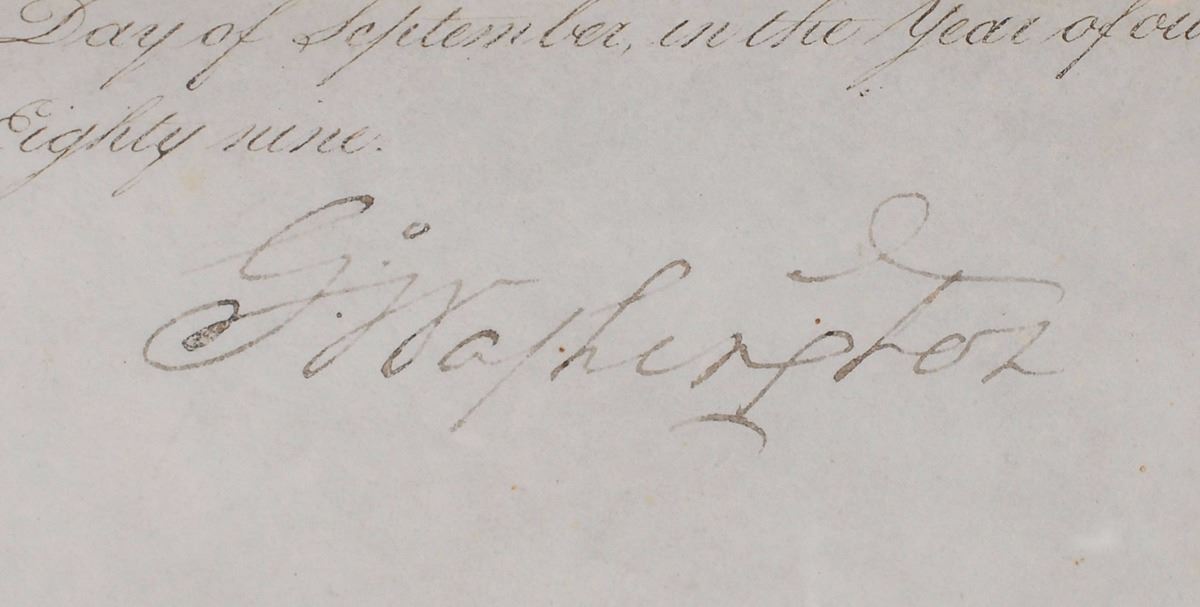 Day of September, in the Year of ou
Eighty nine.
G:Washington